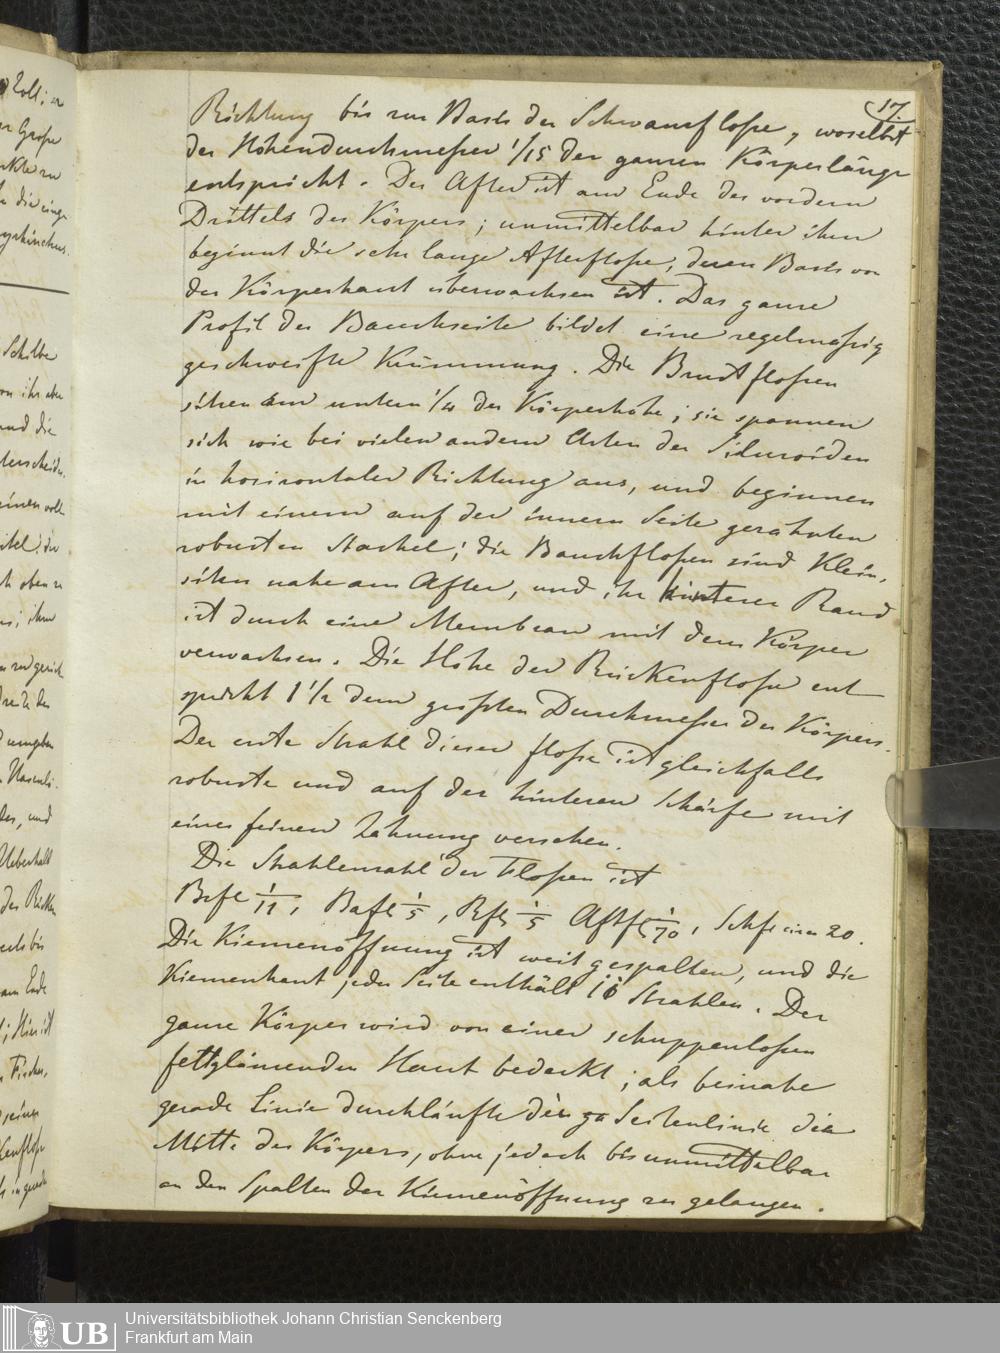 17.
Richtung bis zur Basis der Schwanzflosse, woselbst
der Höhendurchmesser 1/15 der ganzen Körperlänge
entspricht. Der After ist am Ende des vordern
Drittels des Körpers; unmittelbar hinter ihm
beginnt die sehr lange Afterflosse, deren Basis von
der Körperhaut überwachsen ist. Das ganze
Profil der Bauchseite bildet eine regelmässig
geschweifte Krümmung. Die Brustflossen
sitzen am untern 1/4 der Körperhöhe; sie spannen
sich wie bei vielen andern Arten der Siluroiden
in horizontaler Richtung aus, und beginnen
mit einem auf der innern Seite gezähnten
robusten Stachel; die Bauchflossen sind klein,
sitzen nahe am After, und ihr hinterer Rand
ist durch eine Membran mit dem Körper
verwachsen. Die Höhe der Rückenflosse ent
spricht 1 1/2 dem grössten Durchmesser des Körpers.
Der erste Strahl dieser flosse ist gleichfalls
robuste und auf der hinteren Schärfe mit
einer feinen Zahnung versehen.
Die Strahlenzahl der Flossen ist
Brfl 1/11, Bafl 1/5, Rfl 1/5 Aftfl 1/70, Schfl circa 20.
Die Kiemenöffnung ist weit gespalten, und die
Kiemenhaut jeder Seite enthält 10 Strahlen. Der
ganze Körper wird von einer schuppenlosen
fettglänzenden Haut bedeckt; als beinahe
gerade Linie durchläufte die Seitenlinie die
Mitte des Körpers, ohne jedoch bis unmittelbar
an den Spalten der Kiemenöffnung zu gelangen.
Universitätsbibliothek Johann Christian Senckenberg
Frankfurt am Main
UB